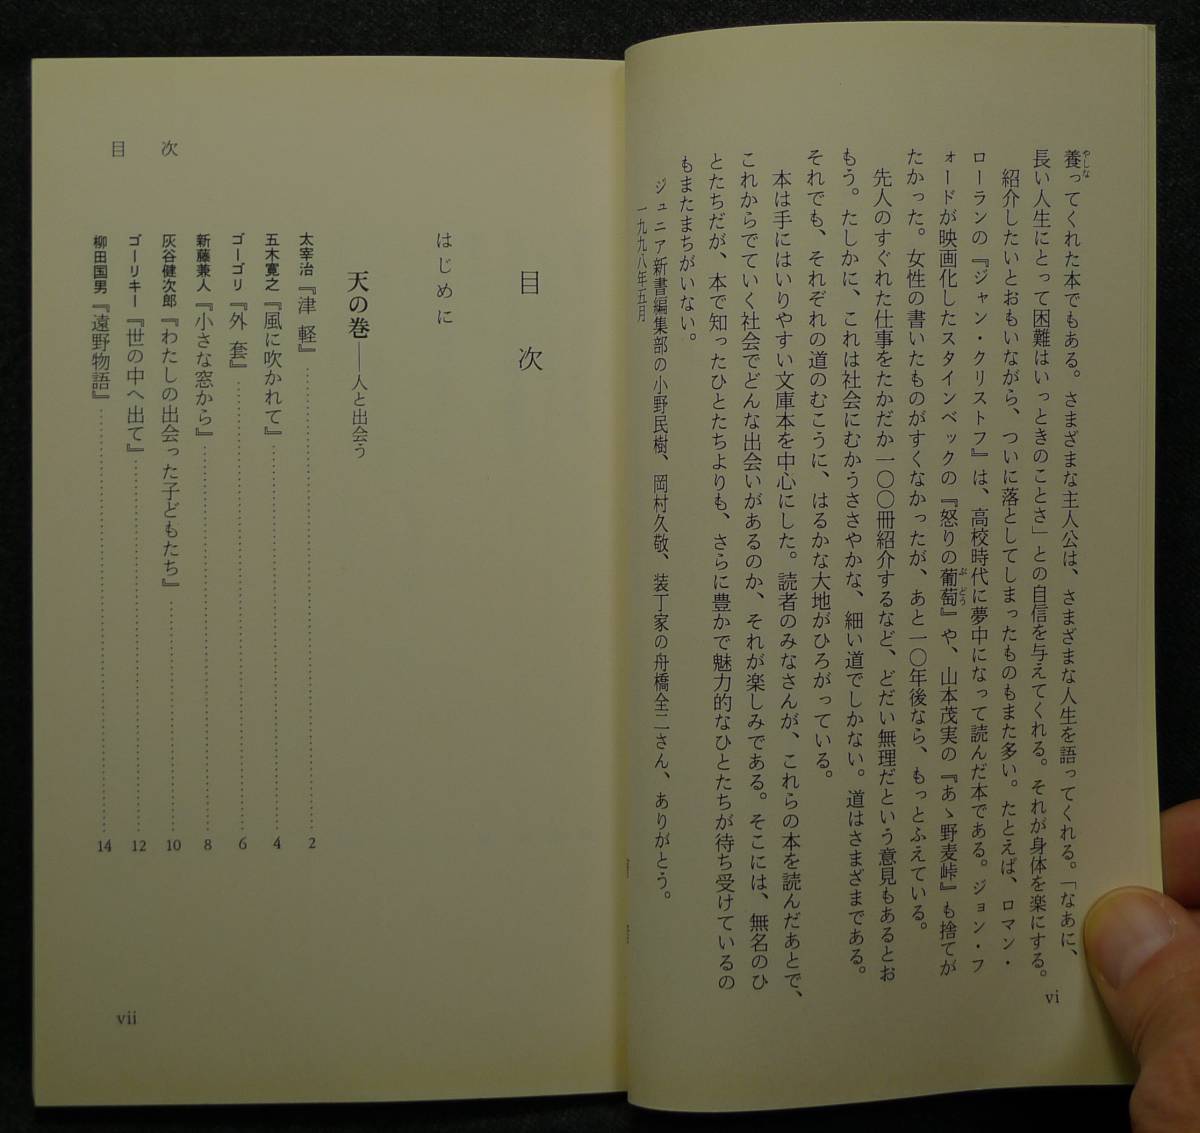 養ってくれた本でもある。さまざまな主人公は、さまざまな人生を語ってくれる。「なあに、
やしな
長い人生にとって困難はいっときのことさ」との自信を与えてくれる。それが身体を楽にする。
紹介したいとおもいながら、ついに落としてしまったものもまた多い。たとえば、ロマン・
ローランの『ジャン・クリストフ』は、高校時代に夢中になって読んだ本である。ジョン・フ
ォードが映画化したスタインベックの『怒りの葡萄』や、山本茂実の『あゝ野麦峠』も捨てが
ぶどう
たかった。女性の書いたものがすくなかったが、あと一〇年後なら、もっとふえている。
先人のすぐれた仕事をたかだか一〇〇冊紹介するなど、どだい無理だという意見もあるとお
もう。たしかに、これは社会にむかうささやかな、細い道でしかない。道はさまざまである。
それでも、それぞれの道のむこうに、はるかな大地がひろがっている。
本は手にはいりやすい文庫本を中心にした。読者のみなさんが、これらの本を読んだあとで、
これからでていく社会でどんな出会いがあるのか、それが楽しみである。そこには、無名のひ
とたちだが、本で知ったひとたちよりも、さらに豊かで魅力的なひとたちが待ち受けているの
もまたまちがいない。
ジュニア新書編集部の小野民樹、岡村久敬、装丁家の舟橋全二さん、ありがとう。
一九九八年五月
vi
目次
はじめに
天の巻――人と出会う
太宰治『津軽』……2
五木寛之『風に吹かれて』……4
ゴーゴリ『外套』……6
新藤兼人『小さな窓から』……8
灰谷健次郎『わたしの出会った子どもたち』……10
ゴーリキー『世の中へ出て』……12
柳田国男『遠野物語』……14
目次
vii